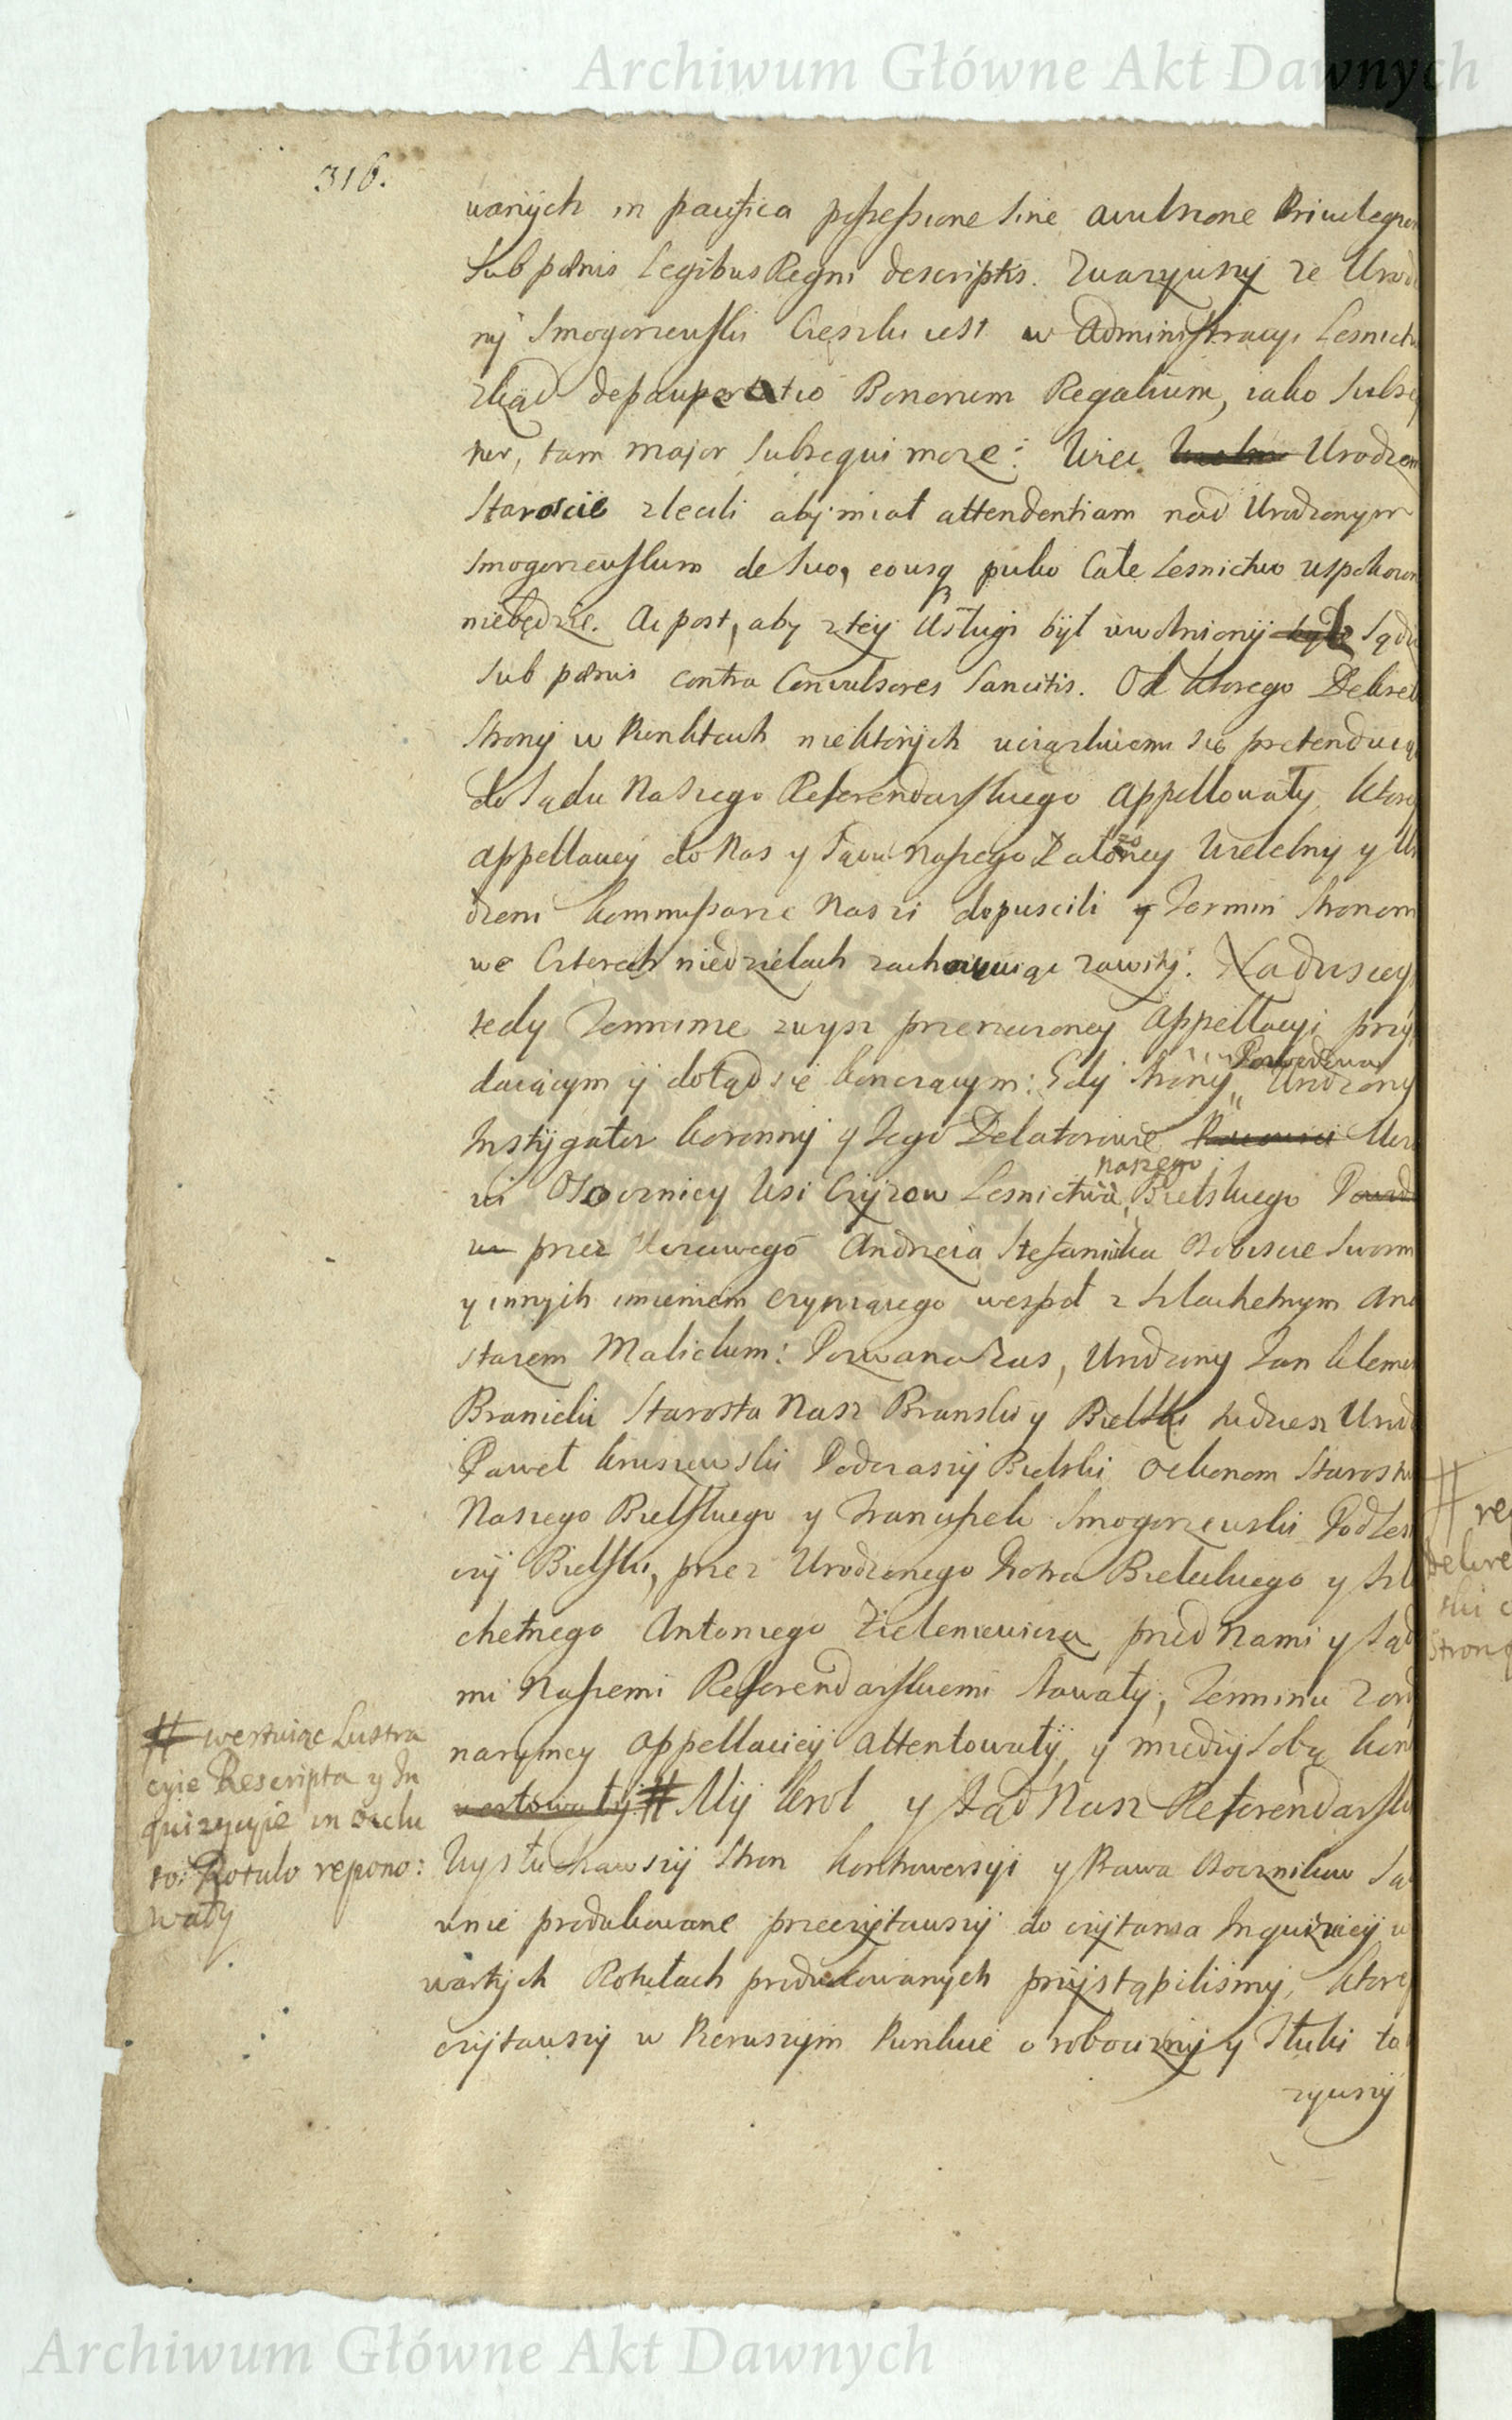 Archiwum Główne Akt Dawnych
316.
wanych in pacifica possessione sine avulsione Privilegior
sub pœnis Legibus Regni descriptis. Zwazywszy ze Urodzo
ny Smogorzewski Cięszki iest w Administracyi Lesnictwa
zkąd depauperatio Bonorum Regalium, iako Subseq
ter, tam major Subsequi moze: Więc Urodzon
Staroscie zlecili aby miał attendentiam nad Urodzonym
Smogorzewskim de suo, eousq poko Całe Lesnictwo uspokoion
niebędzie. Ac post, aby z tey Usługi był uwolniony był Sądz
sub pœnis contra Convulsores Sancitis. Od ktorego Dekretu
Strony w Punktach niektorych uciązliwem się pretenduiąc
do Sądu Naszego Referendarskiego appellowały, ktorey
appellacyi do Nas y Sądu Naszego Załozoney Wielebny y Ur
dzeni Kommissarze Nasi dopuscili y Termin Stronom
we Czterech niedzielach zachowuiąc zawity: Naduscym
tedy Terminie zwysz przerzeczoney Appellacyi przy
daiącym y dotąd się konczącym: Gdy Strony Powodowa Urodzony
Instygator koronny y Jego Delatorowie Ucz
wi Osocznicy Wsi Czyzow Lesnictwa naszego Bielskiego Powod
wa przez Uczciwego Andrzeia Stefaniuka Osobiscie Swoim
y innych imieniem czyniącego wespoł z Szlachetnym Ana
stazem Malickim: Pozwana Zas, Urodzony Jan Klemens
Branicki Starosta Nasz Branski y Bielski tudziesz Urodz
Paweł kruszewski Podczaszy Bielski Oekonom Starostwa
Naszego Bielskiego y Franciszek Smogorzewski Podles
czy Bielski, przez Urodzonego Piotra Bieleckiego y Szla
chetnego Antoniego Zieleniewicza przed Nami y Sąd
mi Naszemi Referendarskiemi Stawały, Terminu Zord
naryiney appellacyi attentowały, y miedzy sobą kon
wertowały # My krol y Sąd Nasz Referendarski
# wertuiąc Lustra
cyie Rescripta y In
quizycyie in oclu
so: Rotulo repono:
wały
Wysłuchawszy Stron kontrowersyi y Prawa Osocznikow Są
wnie produkowane przeczytawszy do czytania Inquizicyi w
wartych Rotułach produkowanych przystąpilismy, ktore
czytawszy w Pierwszym Punkcie o robocizny y Stuki to
zywszy
# re
Dekre
ski
Stron
Archiwum Główne Akt Dawnych